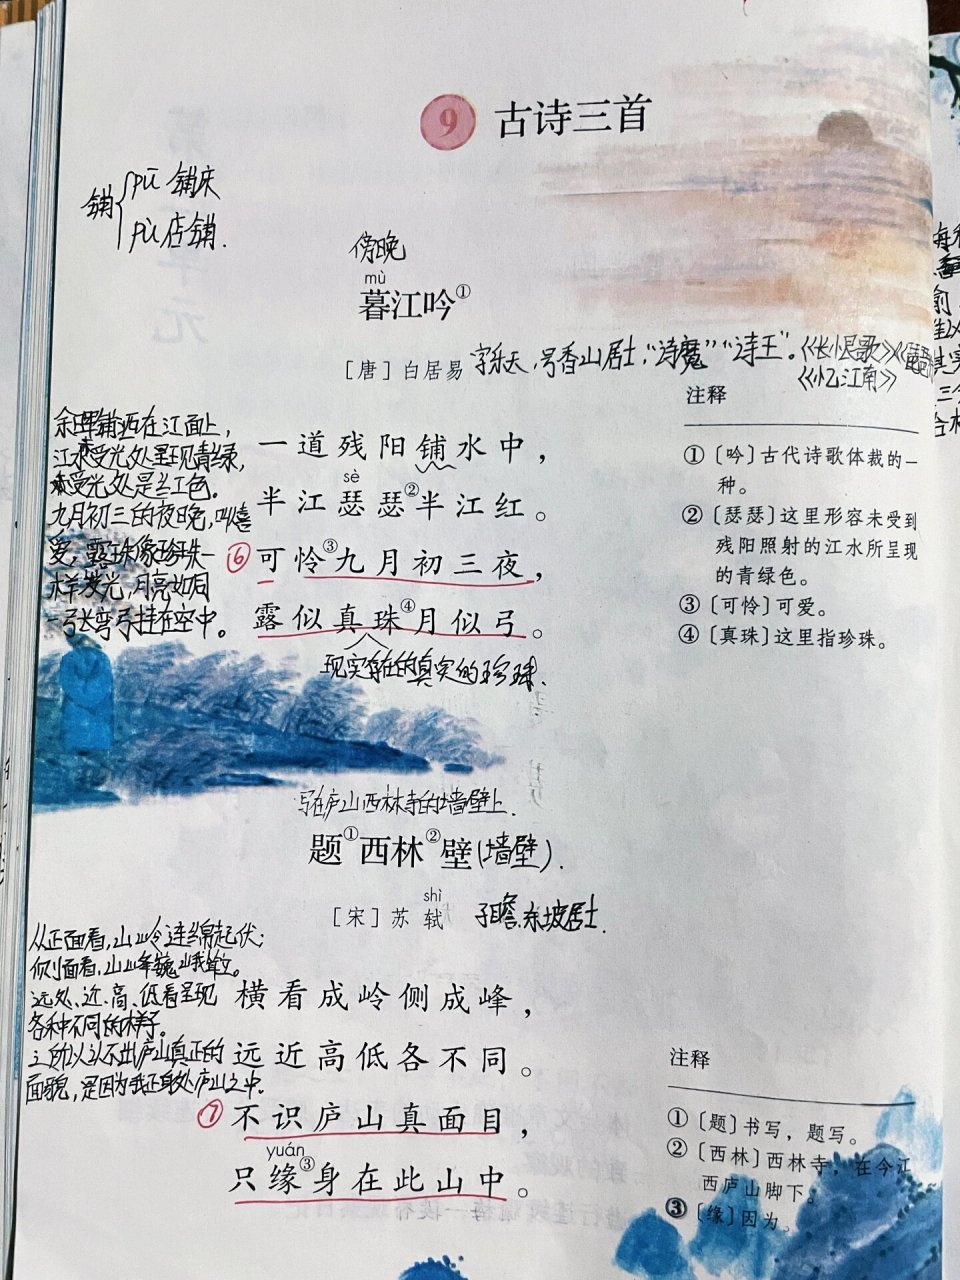 9 古诗三首
铺 pū 铺床
pù 店铺.
傍晚
mù
暮江吟①
［唐］白居易 字乐天,号香山居士,“诗魔”“诗王”。《长恨歌》《琵琶
《忆江南》
余晖铺洒在江面上,
江水受光处呈现青绿,
未受光处是红色。
九月初三的夜晚,叫惹
爱,露珠像珍珠一
样发光,月亮如同
一弓长弯弓挂在空中。
一道残阳铺水中，
sè
半江瑟瑟②半江红。
⑥ 可怜③九月初三夜，
露似真珠④月似弓。
现实存在的真实的珍珠.
注释
①〔吟〕古代诗歌体裁的一
种。
②〔瑟瑟〕这里形容未受到
残阳照射的江水所呈现
的青绿色。
③〔可怜〕可爱。
④〔真珠〕这里指珍珠。
写在庐山西林寺的墙壁上.
题①西林②壁(墙壁).
shì
［宋］苏轼 子瞻,东坡居士.
从正面看,山岭连绵起伏;
侧面看,山峰巍峨耸立。
远处、近、高、低看呈现
各种不同的样子。
之所以认不出庐山真正的
面貌,是因为我正身处庐山之中.
横看成岭侧成峰，
远近高低各不同。
⑦ 不识庐山真面目，
yuán
只缘③身在此山中。
注释
①〔题〕书写，题写。
②〔西林〕西林寺，在今江
西庐山脚下。
③〔缘〕因为。